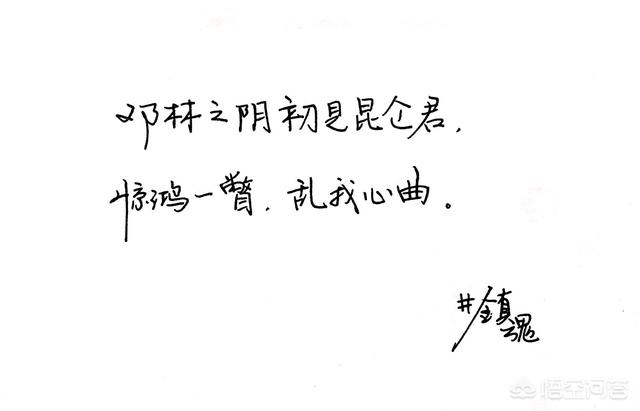 邓林之阴初見昆仑君，
惊鸿一瞥，乱我心曲。
#鎮魂
悟空问答